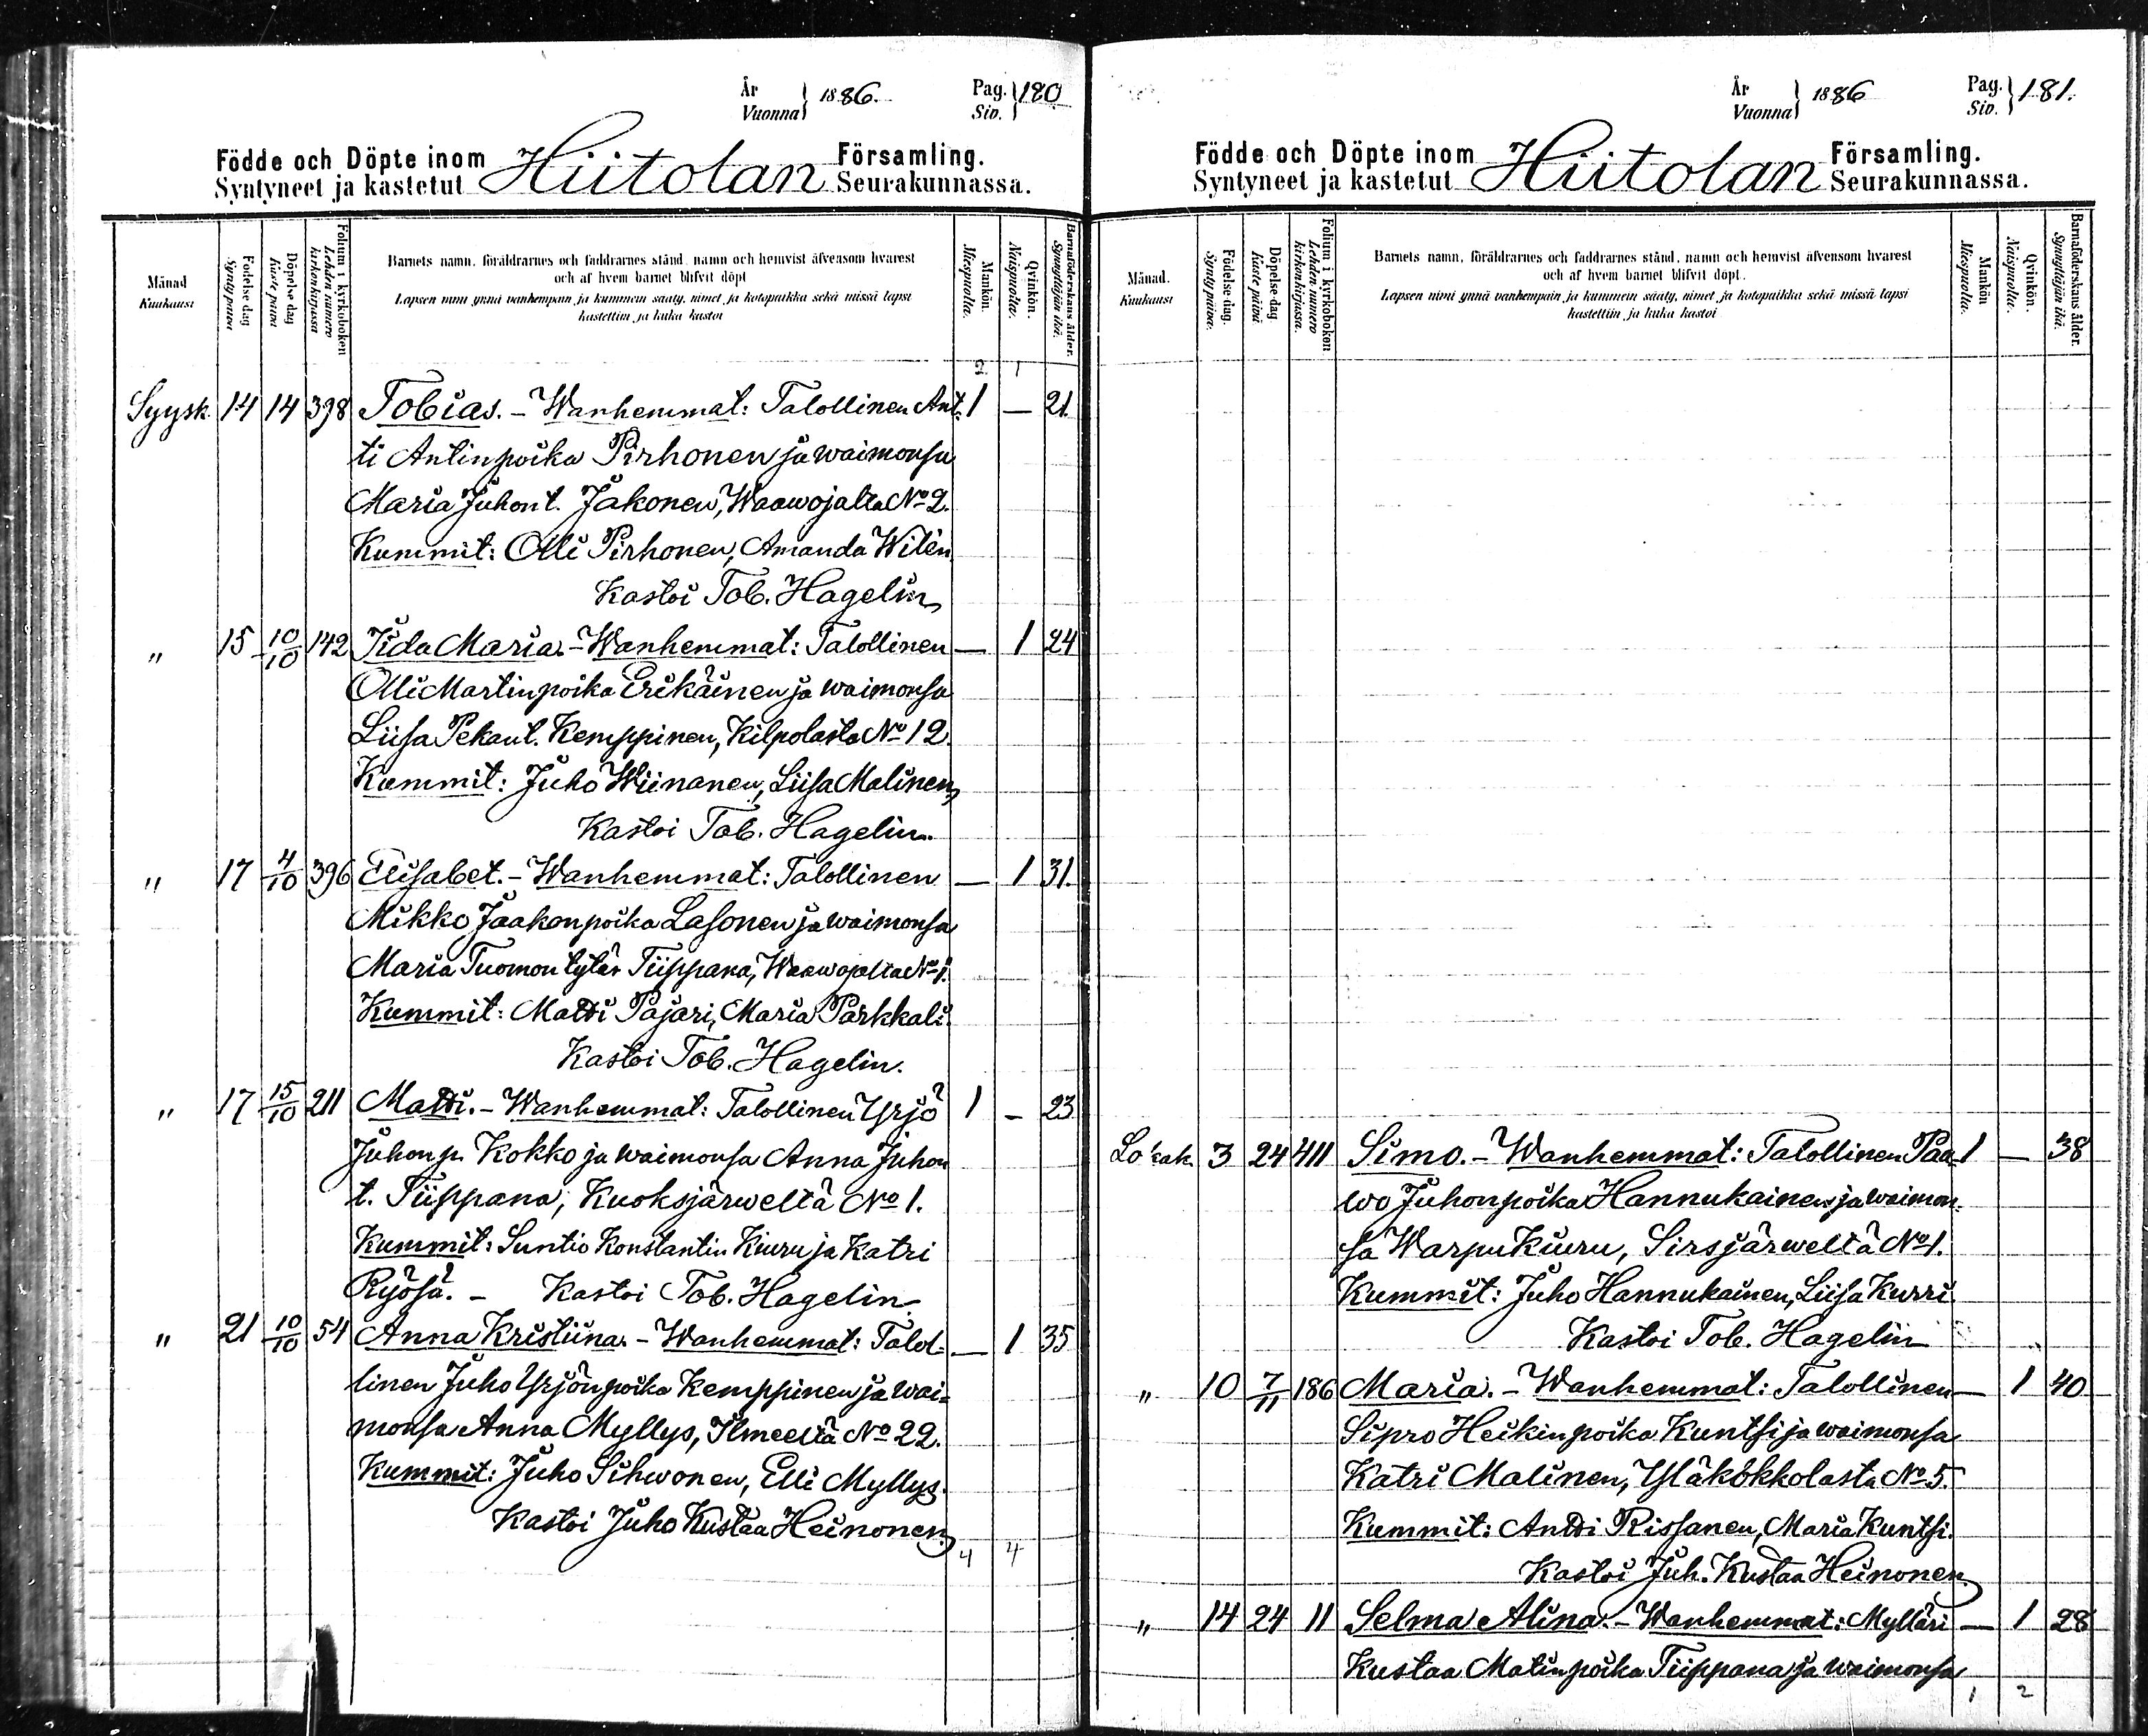 År
Vuonna } 1886.
Pag.
Siv. } 180
Födde och Döpte inom
Syntyneet ja kastetut Hiitolan Församling.
Seurakunnassa.
Månad
Kuukausi
Födelse dag
Synty päivä
Döpelse dag
Kaste päivä
Folium i kyrkoboken
Lehden numero kirkonkirjassa
Barnets namn, föräldrarnes och faddrarnes stånd, namn och hemvist äfvensom hvarest
och af hvem barnet blifvit döpt
Lapsen nimi ynnä vanhempain ja kummein sääty, nimet ja kotopaikka sekä missä lapsi
kastettiin ja kuka kastoi
Mankön.
Miespuolia.
Qvinkön.
Naispuolia.
Barnaföderskans ålder.
Synnyttäjän ikä.
2 1
Syysk. 14 14 398 Tobias. – Wanhemmat: Talollinen Ant- 1 — 21.
ti Antinpoika Pirhonen ja waimonsa
Maria Juhont. Jakonen, Waawojalta No 2.
Kummit: Olli Pirhonen, Amanda Witèn
Kastoi Tob. Hagelin
" 15 10/10 142 Iida Maria. – Wanhemmat: Talollinen — 1 24
Olli Martinpoika Erikäinen ja waimonsa
Liisa Pekant. Kemppinen, Kilpolasta No 12.
Kummit: Juho Wiinanen, Liisa Malinen,
Kastoi Tob. Hagelin.
" 17 4/10 396 Elisabet. – Wanhemmat: Talollinen — 1 31.
Mikko Jaakonpoika Lasonen ja waimonsa
Maria Tuomon tytär Tiippana, Waawojalta No 1.
Kummit: Matti Pajari, Maria Parkkali.
Kastoi Tob. Hagelin.
" 17 15/10 211 Matti. – Wanhemmat: Talollinen Yrjö 1 – 23
Juhonp. Kokko ja waimonsa Anna Juhon
t. Tiippana, Kuoksjärweltä No 1.
Kummit: Suntio Konstantin Kiuru ja Katri
Ryösä. – Kastoi Tob. Hagelin.
" 21 10/10 54 Anna Kristiina. – Wanhemmat: Talol- — 1 35
linen Juho Yrjönpoika Kemppinen ja wai-
monsa Anna Myllys, Ilmeeltä No 22.
Kummit: Juho Sihwonen, Elli Myllys.
Kastoi Juho Kustaa Heinonen.
4 4
År
Vuonna } 1886
Pag.
Siv. } 181.
Födde och Döpte inom
Syntyneet ja kastetut Hiitolan Församling.
Seurakunnassa.
Månad.
Kuukausi
Födelse dag.
Synty päivä.
Döpelse dag
Kaste päivä
Folium i kyrkoboken
Lehden numero kirkonkirjassa.
Barnets namn, föräldrarnes och faddrarnes stånd, namn och hemvist äfvensom hvarest
och af hvem barnet blifvit döpt.
Lapsen nimi ynnä vanhempain ja kummein sääty, nimet ja kotopaikka sekä missä lapsi
kastettiin ja kuka kastoi
Mankön
Miespuolia.
Qvinkön.
Naispuolia.
Barnaföderskans ålder.
Synnyttäjän ikä.
Lokak. 3 24 411 Simo. – Wanhemmat: Talollinen Paa- 1 — 38
wo Juhonpoika Hannukainen ja waimon-
sa Warpu Kiuru, Sirsjärweltä No 1.
Kummit: Juho Hannukainen, Liisa Kurri.
Kastoi Tob. Hagelin
" 10 7/11 186 Maria. – Wanhemmat: Talollinen — 1 40
Sipro Heikinpoika Kuntsi ja waimonsa
Katri Malinen, Yläkokkolasta No 5.
Kummit: Antti Rissanen, Maria Kuntsi.
Kastoi Juh. Kustaa Heinonen.
" 14 24 11 Selma Alina. – Wanhemmat: Mylläri — 1 28
Kustaa Matinpoika Tiippana ja waimonsa
1 2